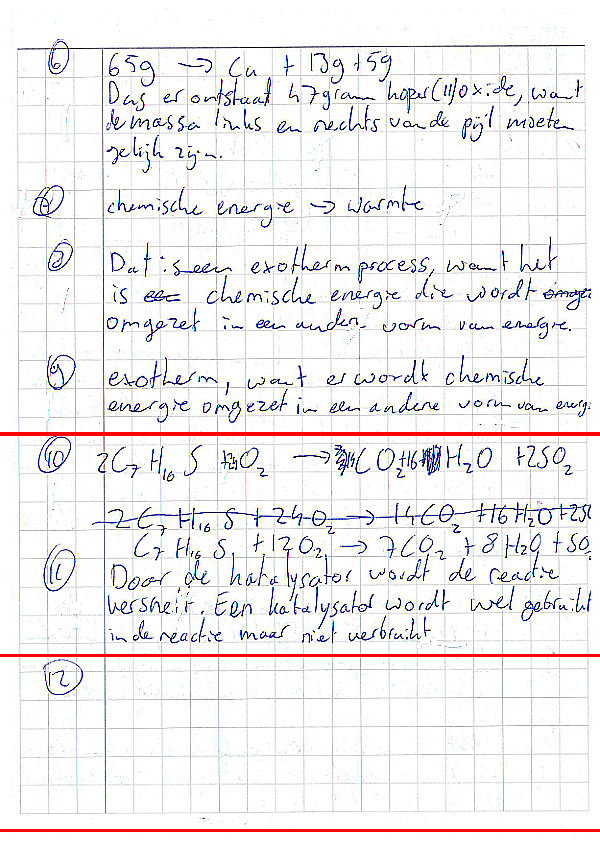 6 65g → Cu + 13g + 5g
Dus er ontstaat 47gram koper(II)oxide, want
de massa links en rechts van de pijl moeten
gelijk zijn.
7 chemische energie → warmte
8 Dat is een exotherm process, want het
is chemische energie die wordt
omgezet in een andere vorm van energie.
9 exotherm, want er wordt chemische
energie omgezet in een andere vorm van energ
10 2C7H16S + 24O2 → 14CO2 + 16H2O + 2SO2
2C7H16S + 24O2 → 14CO2 + 16H2O + 2SO
C7H16S + 12O2 → 7CO2 + 8H2O + SO2
11 Door de katalysator wordt de reactie
versneit. Een katalysator wordt wel gebruikt
in de reactie maar niet verbruikt
12